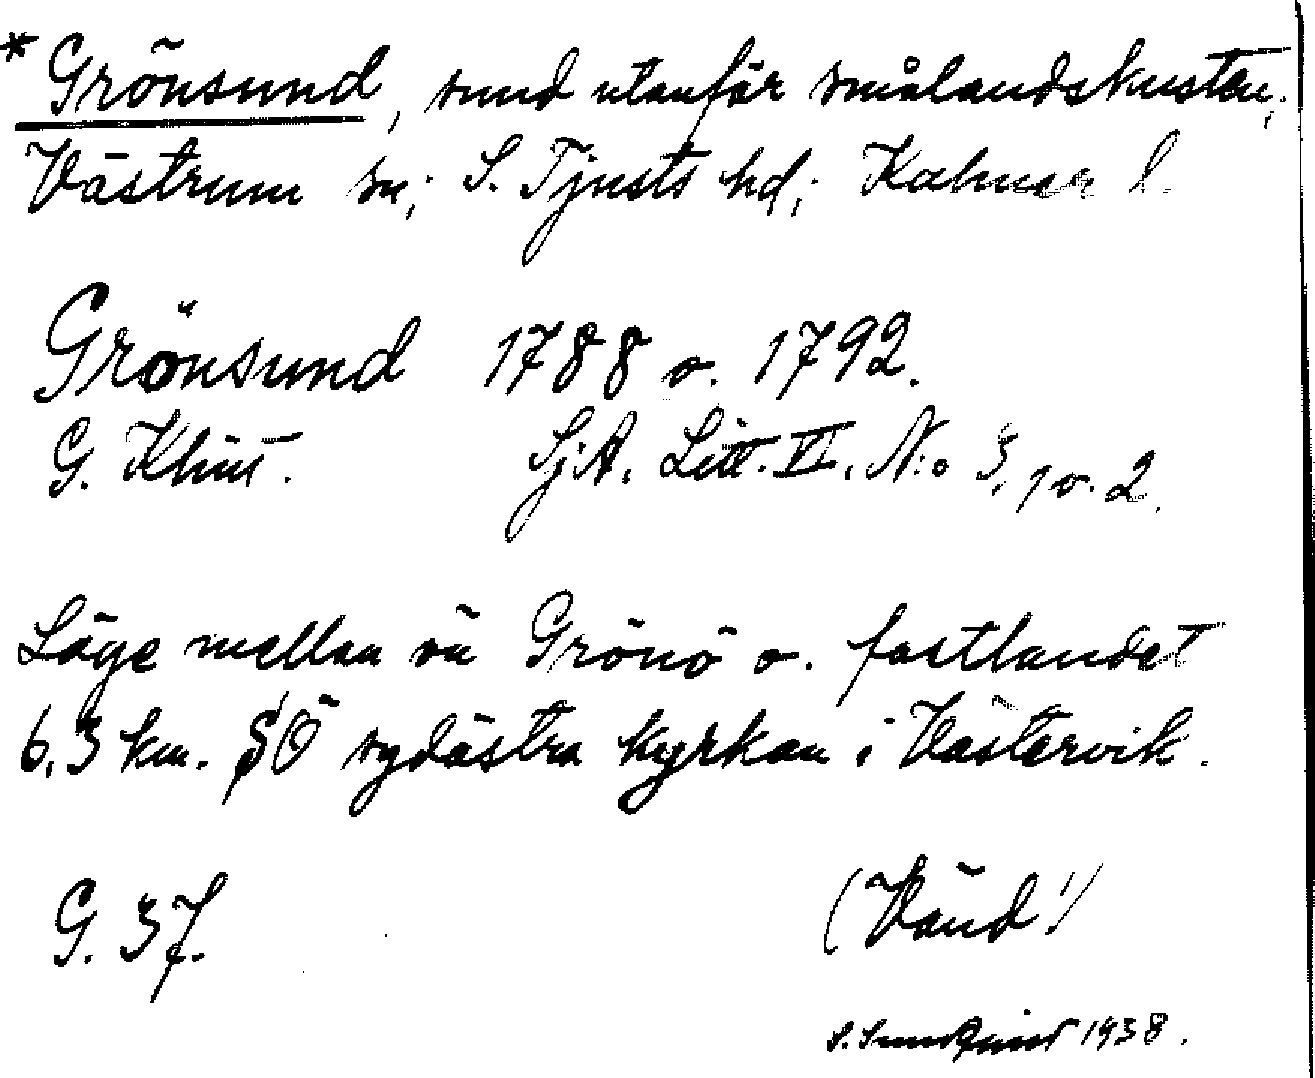 * Grönsund, sund utanför smålandskusten,
Västrum sn; S. Tjusts hd; Kalmar l.
Grönsund 1788 o. 1792.
G. Klint. SjA. Litt. VI. N:o 3, 1 o. 2.
Läge mellan ön Grönö o. fastlandet
6,3 km. SÖ sydöstra kyrkan i Västervik.
G. 37. (Vänd!)
S. 1938.